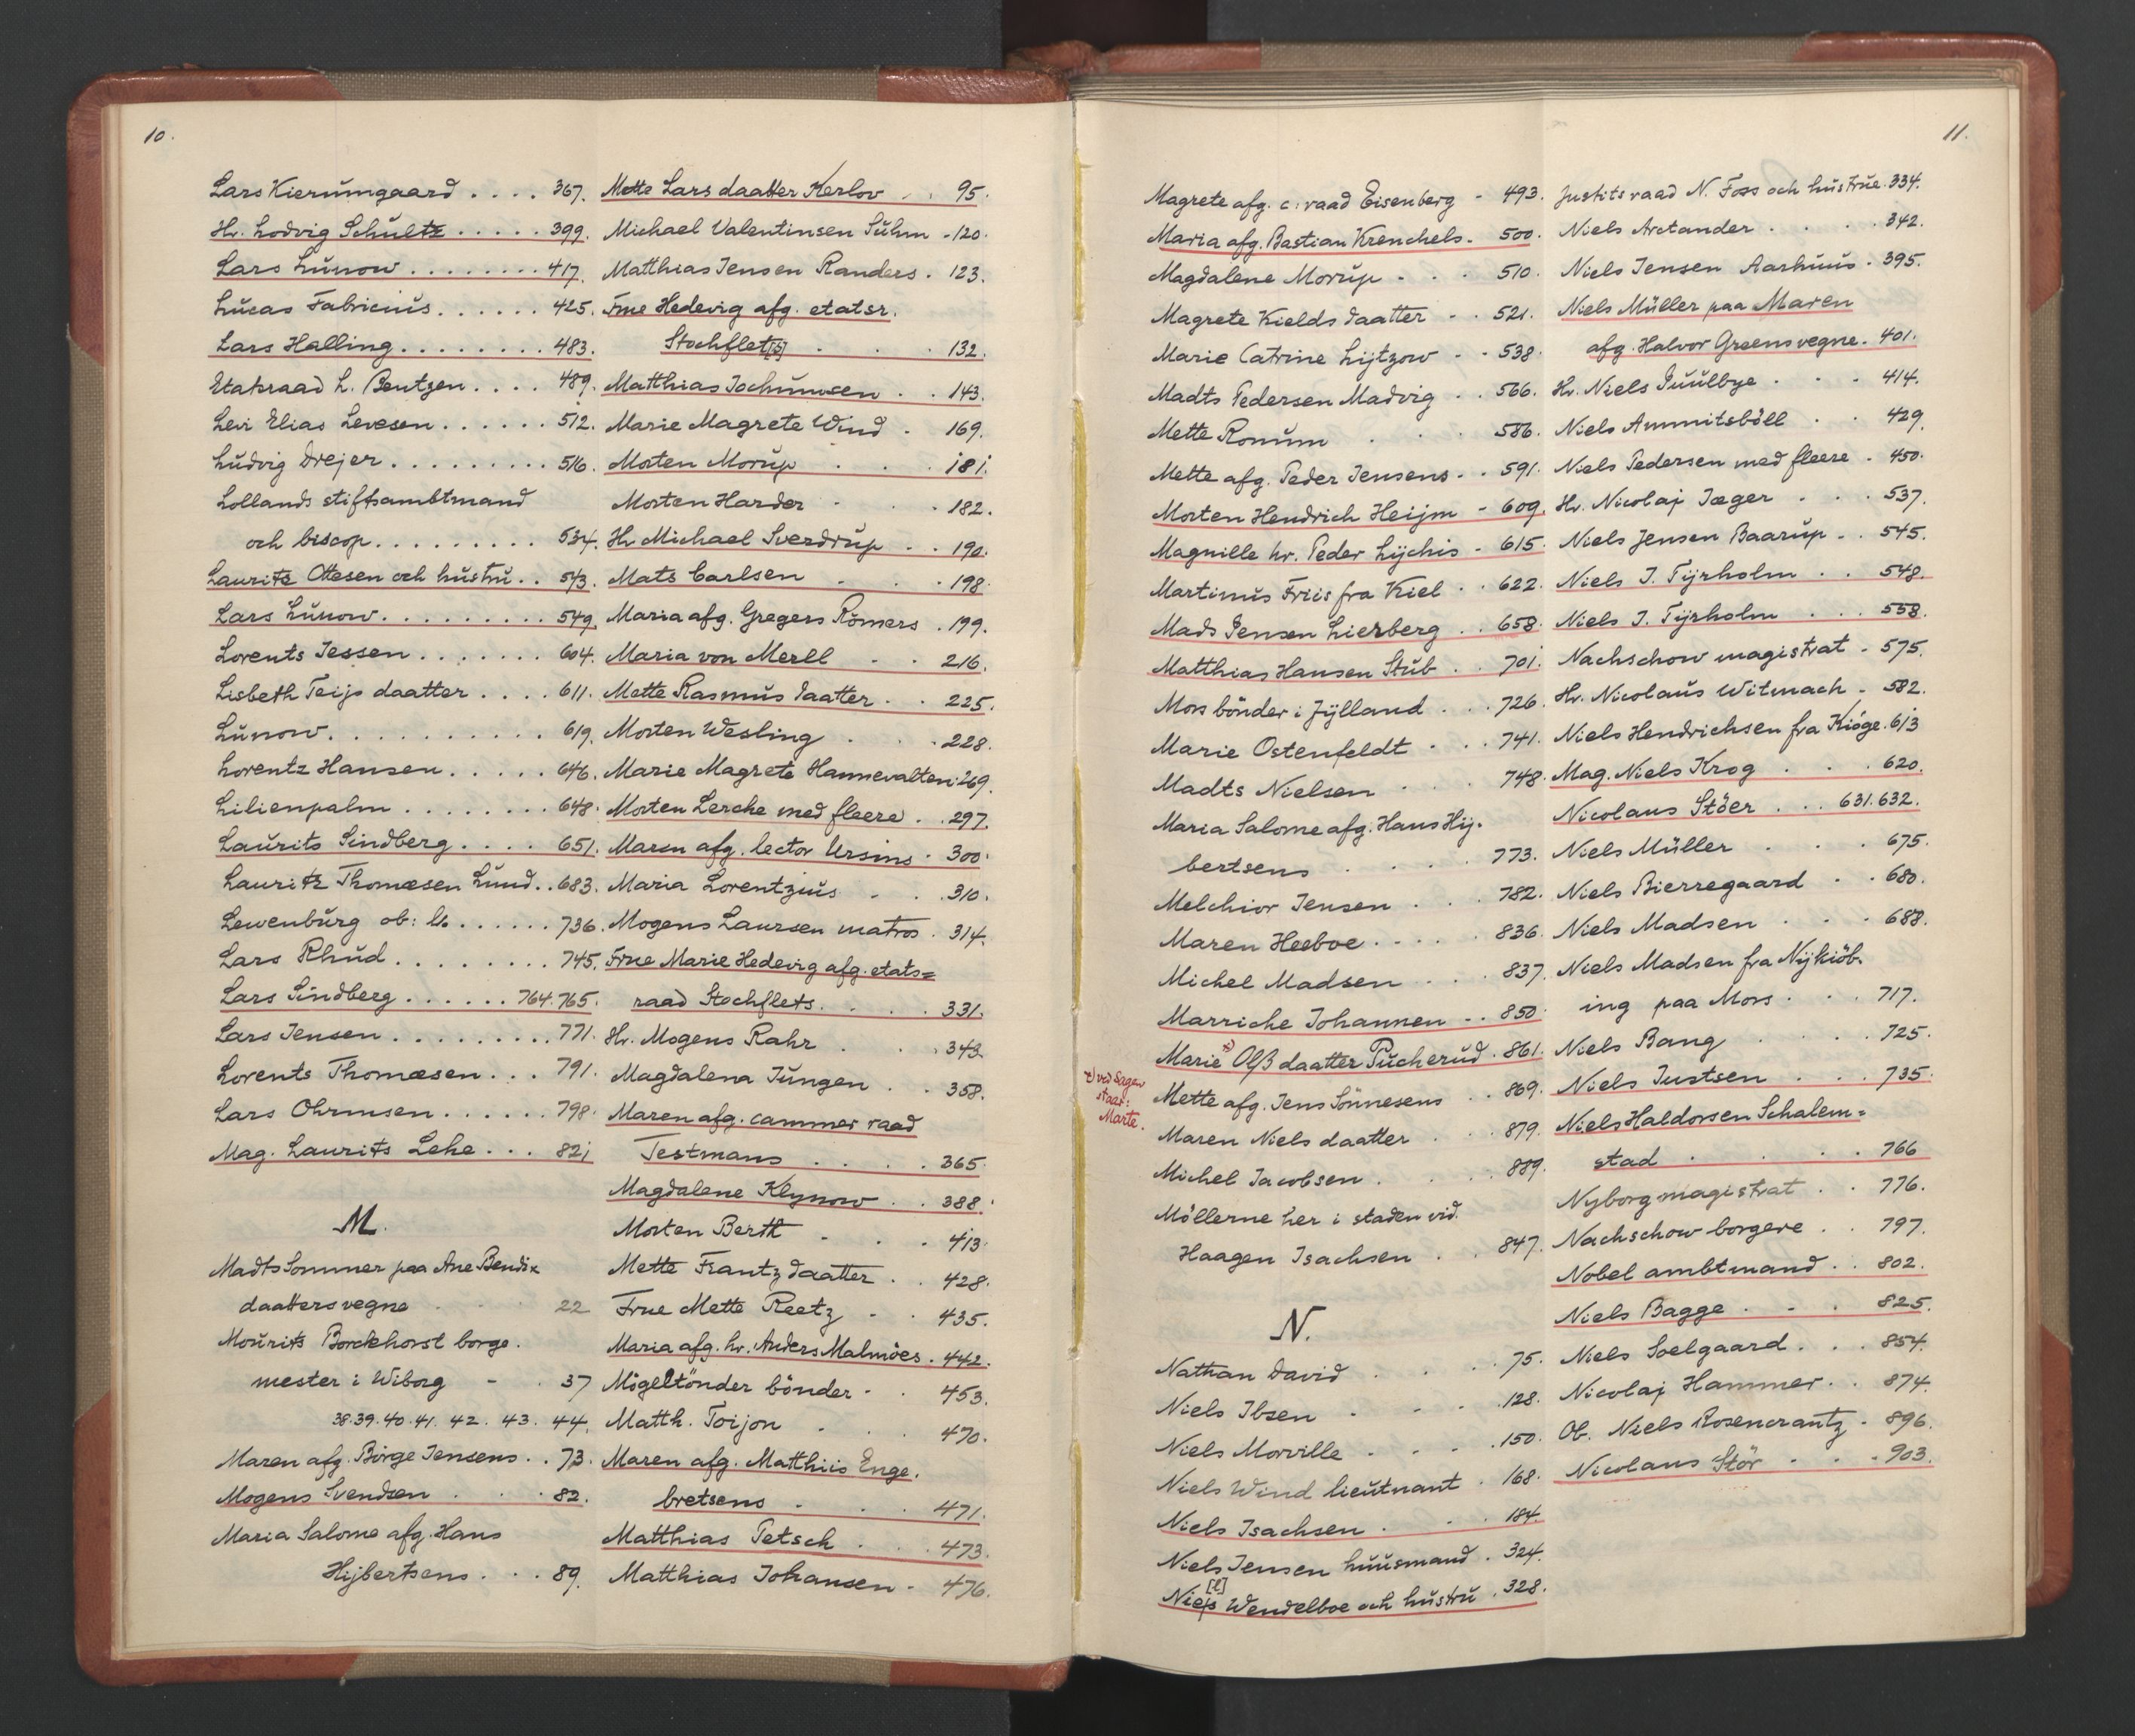 10.
Lars Kierumgaard . . . . 367.
Hr. Lodvig Schultz . . . . . 399.
Lars Lunow . . . . . . . . 417.
Lucas Fabricius . . . . . . 425.
Lars Halling . . . . . . . . 483.
Etatsraad L. Bentzen . . . . 489.
Levi Elias Levesen . . . . . . 512.
Ludvig Drejer . . . . . . . . . 516.
Lollands stiftsambtmand
och biscop . . . . . . . . . 534.
Lauritz Ottesen och hustru . . 543.
Lars Lunow . . . . . . . . . 549.
Lorents Jessen . . . . . . . 604.
Lisbeth Teijs daatter . . . . 611.
Lunow . . . . . . . . . . 619.
Lorentz Hansen . . . . . 646.
Lilienpalm . . . . . . . . 648.
Laurits Sindberg . . . . 651.
Lauritz Thomæsen Lund . . 683.
Lewenburg ob: lt. . . . . . . 736.
Lars Rhud . . . . . . . . 745.
Lars Sindberg . . . . . . 764.765.
Lars Jensen . . . . . . . . . 771.
Lorents Thomæsen . . . 791.
Lars Ohrmsen . . . . . . 798.
Mag. Laurits Lehe . . . 821
M.
Madts Sommer paa Ane Bendix
daatters vegne . . . 22
Mourits Borckhorst borge-
mester i Wiborg - . 37
38.39.40.41.42.43.44.
Maren afg. Börge Jensens . . 73.
Mogens Svendsen . . . 82.
Maria Salome afg. Hans
Hijbertsens . . . 89.
Mette Lars daatter Kerlov . . 95.
Michael Valentinsen Suhm - 120.
Matthias Jensen Randers . 123.
Frue Hedevig afg. etatsr.
Stochflet[s] . . . 132.
Matthias Jochumsen . . 143.
Marie Magrete Wind - 169.
Morten Morup . . . 181.
Morten Harder - . . 182.
Hr Michael Sverdrup . . 190.
Mats Carlsen . . . 198.
Maria afg. Gregers Römers . 199.
Maria von Merll - . 216.
Mette Rasmus daatter . . 225.
Morten Wesling . . . 228.
Marie Magrete Hannevalten . 269.
Morten Lerche med fleere . . 297.
Maren afg. lector Ursins . 300.
Maria Lorentzius - . . 310.
Mogens Laursen matros . 314.
Frue Marie Hedevig afg. etats=
raad Stochflets . . . . 331.
Hr. Mogens Rahr . . . 343
Magdalena Jungen . . 358.
Maren afg. cammer raad
Testmans . . . . 365.
Magdalene Klynow . . 388.
Morten Berth - . . 413.
Mette Frantz daatter . . 428.
Frue Mette Reetz - . 435.
Maria afg. hr. Anders Malmöes . 442.
Mögeltönder bönder - . 453.
Matth. Toijon . . . 470.
Maren afg. Matthiis Enge.
bretsens . . . 471.
Matthias Petsch . . . 473.
Matthias Johansen - 476.
11.
Magrete afg. c: raad Eisenberg - 493.
Maria afg. Bastian Krenchels - 500.
Magdalene Morup - . . 510.
Magrete Kields daatter - . 521.
Marie Catrine Lijtzow - - 538.
Madts Pedersen Madvig . . 566.
Mette Romum . . . 586.
Mette afg. Peder Jensens - . 591.
Morten Hendrich Heijm - 609.
Magnille hr. Peder Lijchis - 615.
Martinus Friis fra Kiel . . 622.
Mads Jensen Lierberg . . 658.
Matthias Hansen Stub . . 701.
Mors bönder i Jylland . . . 726.
Marie Ostenfeldt . . . 741.
Madts Nielsen . . . 748.
Maria Salome afg. Hans Hij-
bertsens . . . . 773.
Melchior Jensen . . . 782.
Maren Heeboe . . . . 836.
Michel Madsen . . . 837.
Marriche Johannen - . 850.
Marie x) Olß daatter Pucherud . 861.
x) ved Sagen
staar:
Marte.
Mette afg. Jens Sönnesens . . 869.
Maren Niels daatter . . . 879.
Michel Jacobsen . . . 889.
Möllerne her i staden vid.
Haagen Isachsen . . 847.
N.
Nathan David . . . . 75.
Niels Ibsen - - - . 128.
Niels Morville - - - . 150.
Niels Wind lieutnant . 168.
Niels Isachsen . . . 184.
Niels Jensen huusmand . 324.
Nie[l]s Wendelboe och hustru . 328.
Justitsraad N. Foss och hustrue . 334.
Niels Arctander . . . . 342.
Niels Jensen Aarhuus . 395.
Niels Müller paa Maren
afg. Halvor Greens vegne . 401.
Hr. Niels Juulbye . . . 414.
Niels Ammitsböll . . 429.
Niels Pedersen med fleere . 450.
Hr. Nicolaj Jæger . . . 537.
Niels Jensen Baarup . . 545.
Niels J. Tijrholm . . 548.
Niels J. Tijrholm . . . 558.
Nachschow magistrat - 575.
Hr. Nicolaus Witmach - 582.
Niels Hendrichsen fra Kiöge . 613
Mag. Niels Krog . . . 620.
Nicolaus Stöer . . . 631.632.
Niels Müller . . . 675.
Niels Bierregaard . . 680.
Niels Madsen . . . 688.
Niels Madsen fra Nykiöb-
ing paa Mors . . . 717.
Niels Bang . . . . 725.
Niels Justsen . . . 735.
Niels Haldorsen Schalem=
stad . . . . 766
Nyborg magistrat . . 776.
Nachschow borgere . . 797.
Nobel ambtmand . . 802.
Niels Bagge . - . 825.
Niels Soelgaard . . . 854.
Nicolaj Hammer . . 874.
Ob. Niels Rosencrantz . 896.
Nicolaus Stör . . . 903.